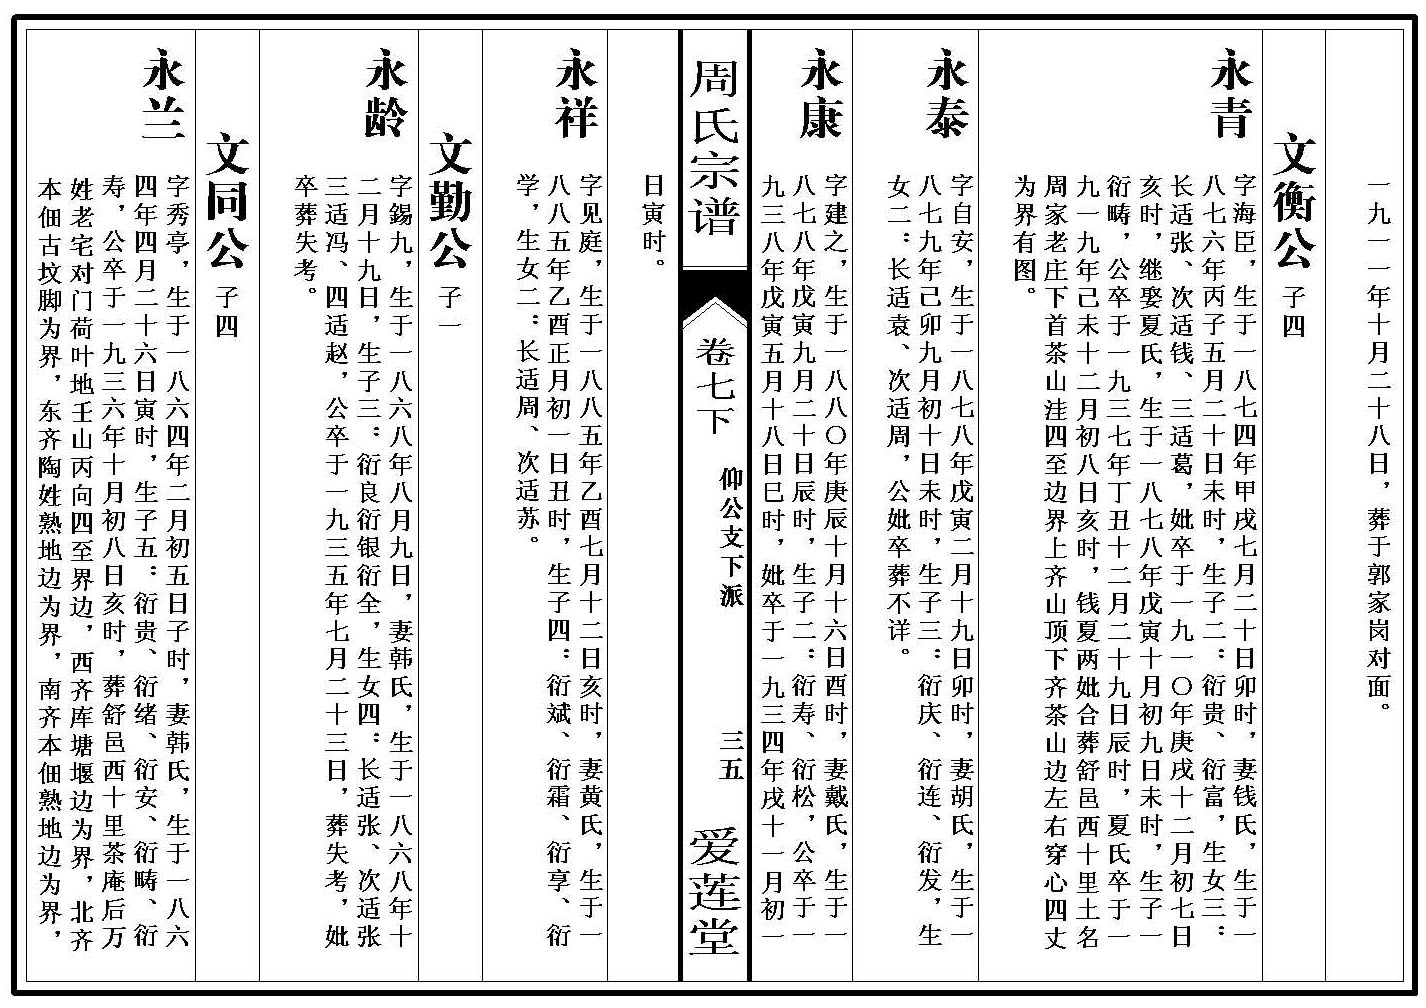 一九一一年十月二十八日，葬于郭家岗对面。
文衡公 子四
永青
字海臣，生于一八七四年甲戌七月二十日卯时，妻钱氏，生于一
八七六年丙子五月二十日未时，生子二：衍贵、衍富，生女三：
长适张、次适钱、三适葛，妣卒于一九一〇年庚戌十二月初七日
亥时，继娶夏氏，生于一八七八年戊寅十月初九日未时，生子一
衍畴，公卒于一九三七年丁丑十二月二十九日辰时，夏氏卒于一
九一九年己未十二月初八日亥时，钱夏两妣合葬舒邑西十里土名
周家老庄下首茶山洼四至边界上齐山顶下齐茶山边左右穿心四丈
为界有图。
永泰
字自安，生于一八七八年戊寅二月十九日卯时，妻胡氏，生于一
八七九年己卯九月初十日未时，生子三：衍庆、衍连、衍发，生
女二：长适袁、次适周，公妣卒葬不详。
永康
字建之，生于一八八〇年庚辰十月十六日酉时，妻戴氏，生于一
八七八年戊寅九月二十日辰时，生子二：衍寿、衍松，公卒于一
九三八年戊寅五月十八日巳时，妣卒于一九三四年戌十一月初一
周氏宗谱
卷七下
仰公支下派
三五
爱莲堂
日寅时。
永祥
字见庭，生于一八八五年乙酉七月十二日亥时，妻黄氏，生于一
八八五年乙酉正月初一日丑时，生子四：衍斌、衍霜、衍享、衍
学，生女二：长适周、次适苏。
文勤公 子一
永龄
字錫九，生于一八六八年八月九日，妻韩氏，生于一八六八年十
二月十九日，生子三：衍良衍银衍全，生女四：长适张、次适张
三适冯、四适赵，公卒于一九三五年七月二十三日，葬失考，妣
卒葬失考。
文同公 子四
永兰
字秀亭，生于一八六四年二月初五日子时，妻韩氏，生于一八六
四年四月二十六日寅时，生子五：衍贵、衍绪、衍安、衍畴、衍
寿，公卒于一九三六年十月初八日亥时，葬舒邑西十里茶庵后万
姓老宅对门荷叶地壬山丙向四至界边，西齐库塘堰边为界，北齐
本佃古坟脚为界，东齐陶姓熟地边为界，南齐本佃熟地边为界，